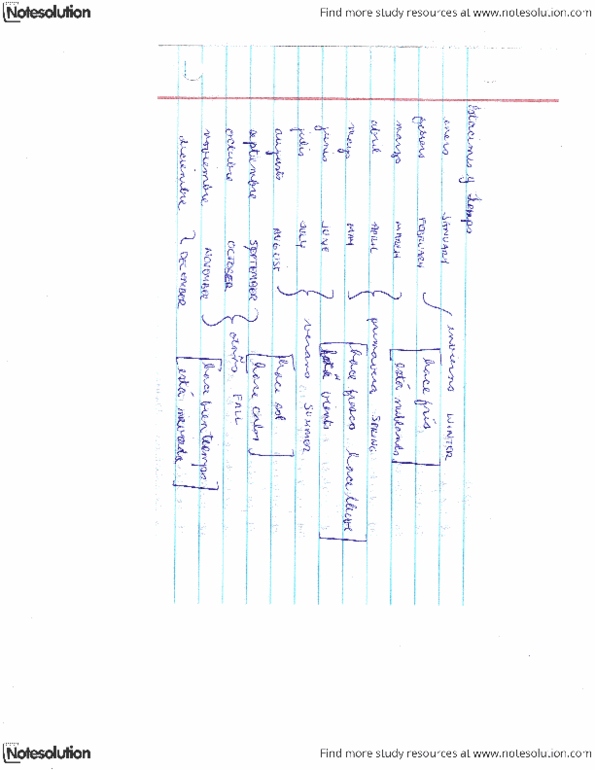 Notesolution
Find more study resources at www.notesolution.com
Estaciones y tiempo
enero JANUARY invierno WINTER
febrero FEBRUARY hace frío
marzo MARCH está
abril APRIL primavera SPRING
mayo MAY hace fresco hace
junio JUNE viento
julio JULY verano SUMMER
augusto AUGUST hace sol
septiembre SEPTEMBER hace calor
octubre OCTOBER otoño FALL
noviembre NOVEMBER hace bien tiempo
diciembre DECEMBER está nevando
Notesolution
Find more study resources at www.notesolution.com